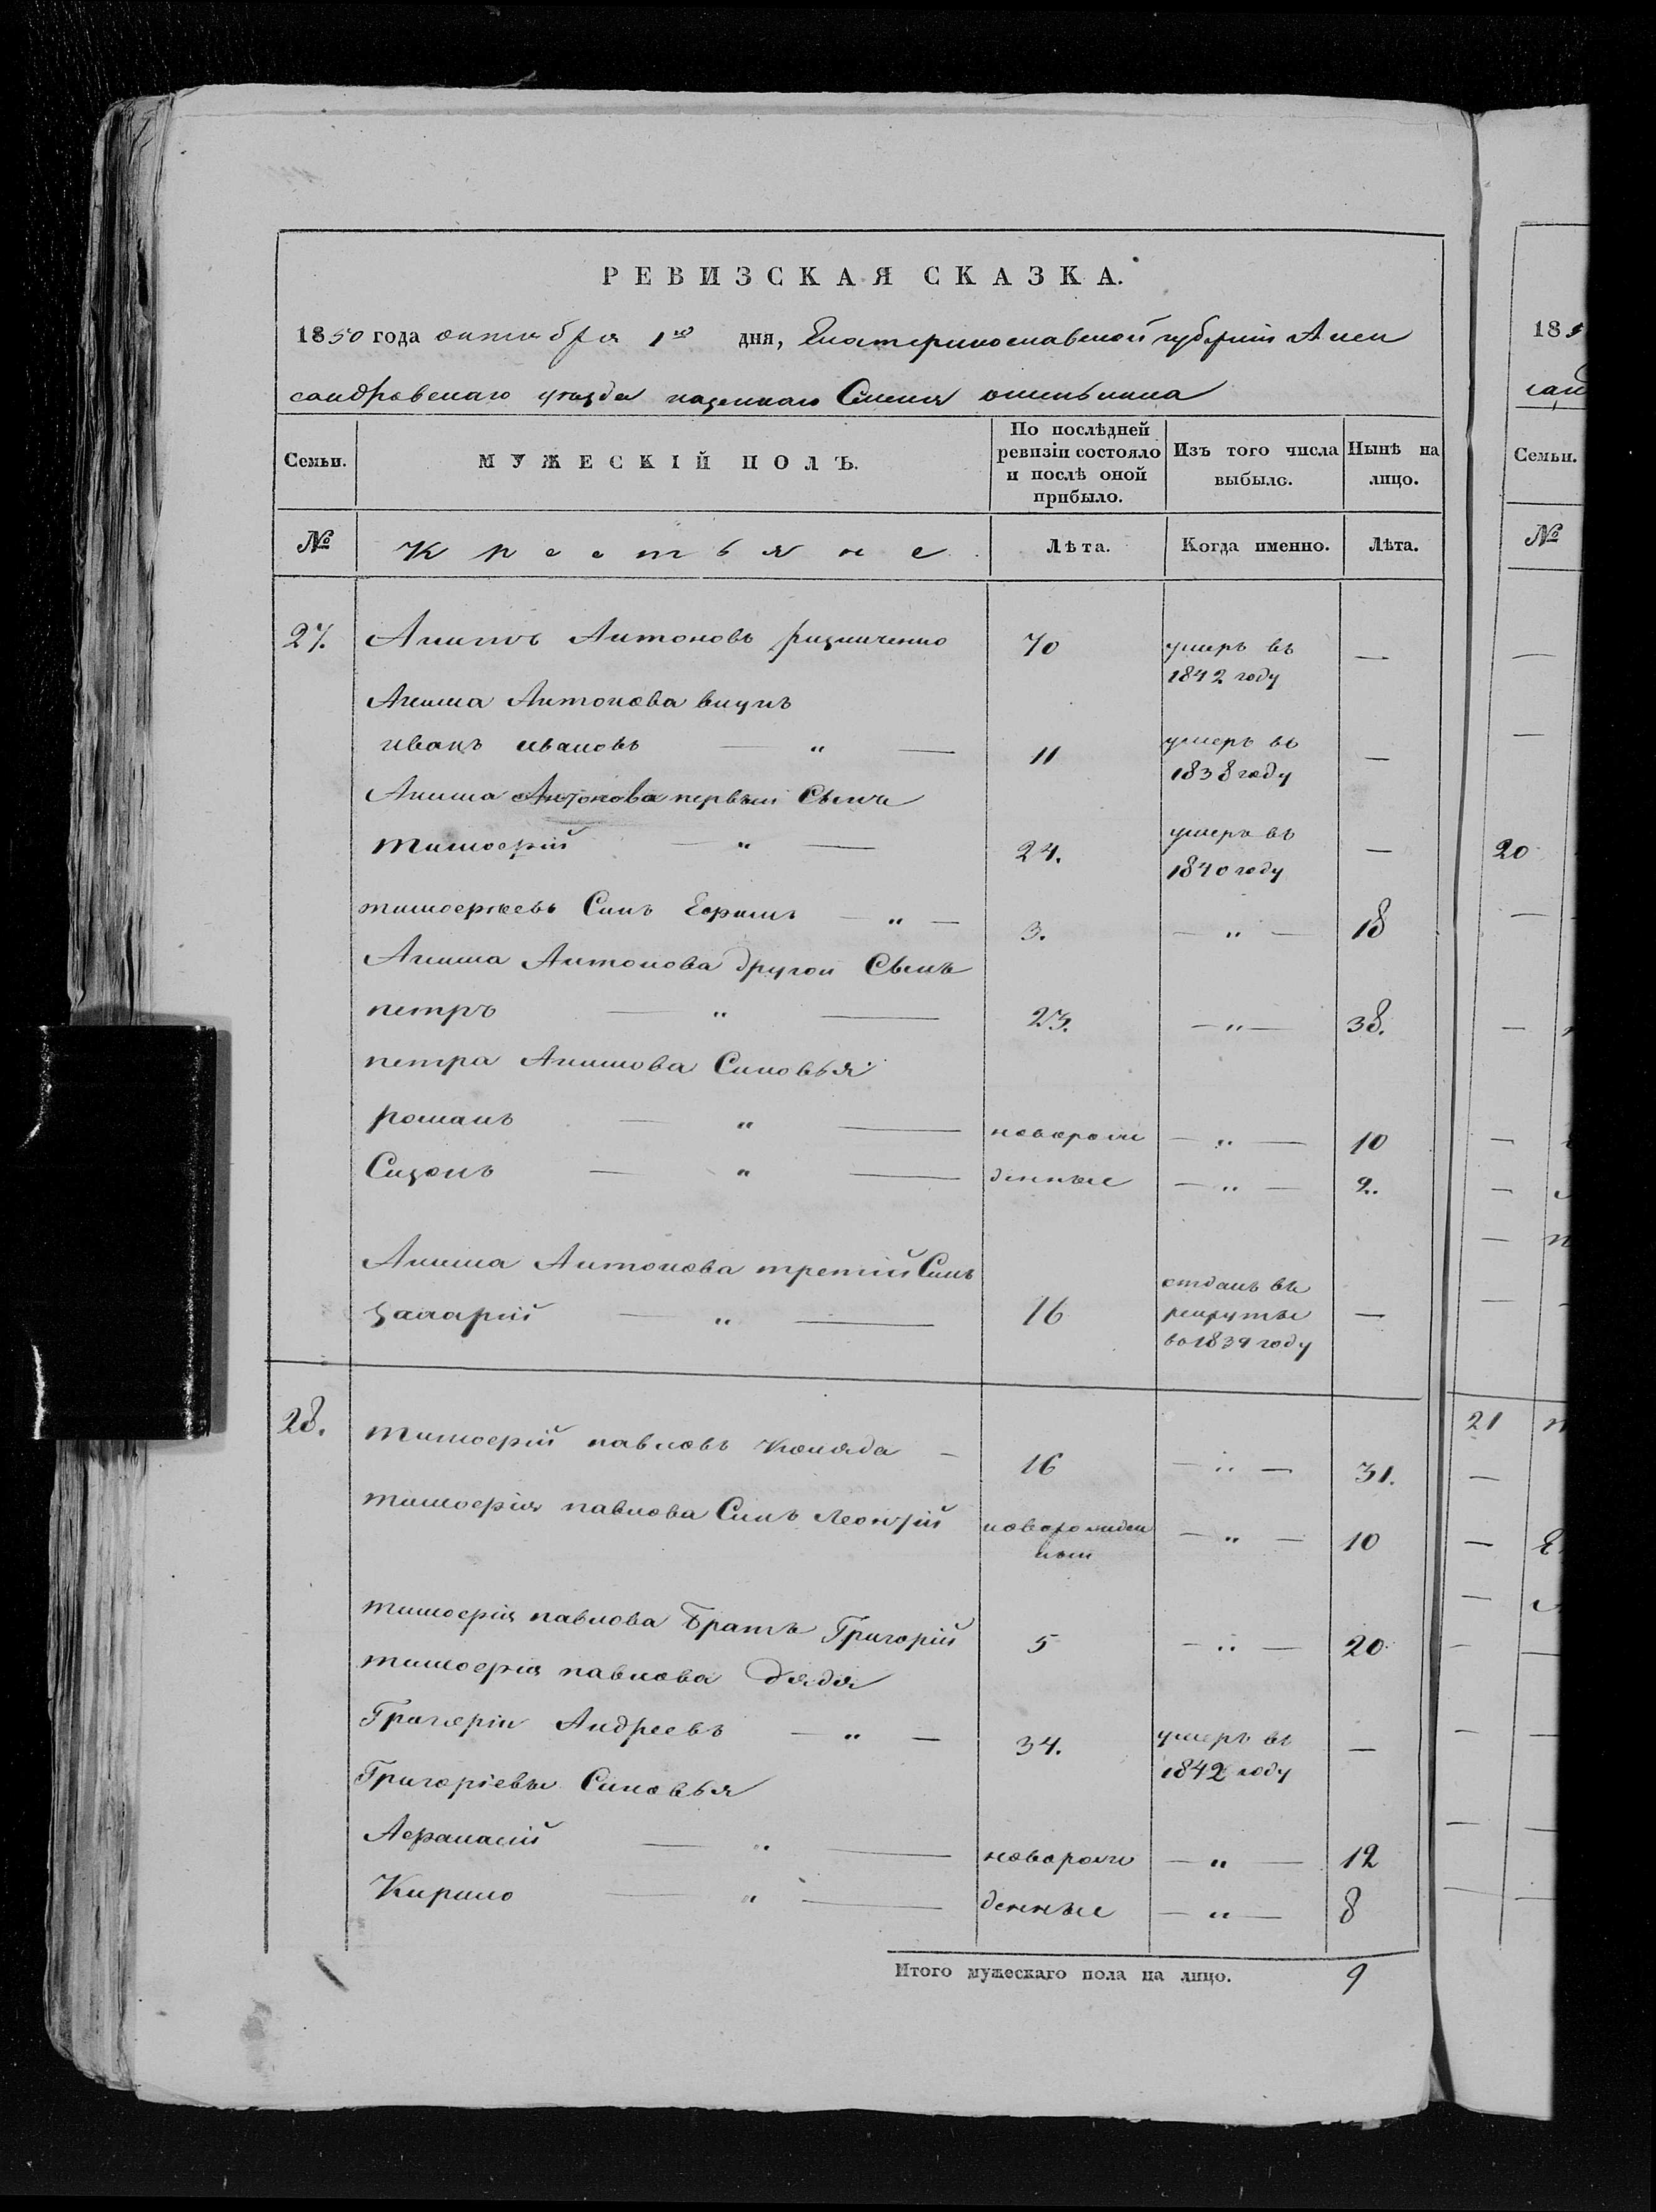 РЕВИЗСКАЯ СКАЗКА.
1850 года октября 1го дня, Екатеринославской губерніи Алек
сандровскаго уѣзда казеннаго Селенія
Семьи.
МУЖЕСКІЙ ПОЛЪ.
По послѣдней ревизіи состояло и послѣ оной прибыло.
Изъ того числа выбыло.
Нынѣ на лицо.
№ Крестьяне Лѣта. Когда именно. Лѣта.
27. Акимъ Антоновъ ризниченко 70 умеръ въ 1842 году —
Акима Антонова внукъ
иванъ ивановъ — „ — 11 умеръ въ 1838 году —
Акима Антонова первый Сынъ
тимоефій — „ — 24. умеръ въ 1840 году —
Синъ Ефимъ — „ — 3. — „ — 18
Акима Антонова другой Сынъ
петръ — „ — 23. — „ — 38.
петра Акимова Синовья
романъ — „ — новорож — „ — 10
Сизонъ — „ — денные — „ — 2.
Акима Антонова третій Синъ
захарій — „ — 16 отданъ въ рекруты во 1839 году —
28. тимофій павловъ Коляда — 16 — „ — 31.
тимофія павлова Синъ Леонтій новорожден ный — „ — 10
тимофія павлова Братъ Григорій 5 — „ — 20
тимофія павлова дядя
Григорій Андреевъ — „ — 34. умеръ въ 1842 году —
Григоріевы Синовья
Афанасій — „ — новорож — „ — 12
Кирило — „ — денные — „ — 8
Итого мужескаго пола на лицо. 9
185
санд
Семьи.
№
20
21